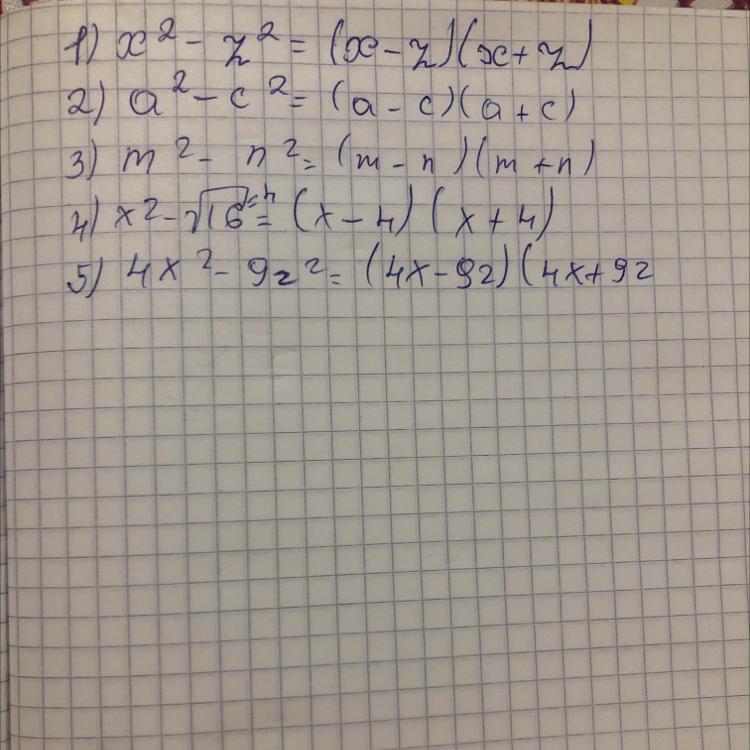 1) x² - z² = (x - z)(x + z)
2) a² - c² = (a - c)(a + c)
3) m² - n² = (m - n)(m + n)
4) x² - √16=4 = (x - 4)(x + 4)
5) 4x² - 9z² = (4x - 9z)(4x + 9z